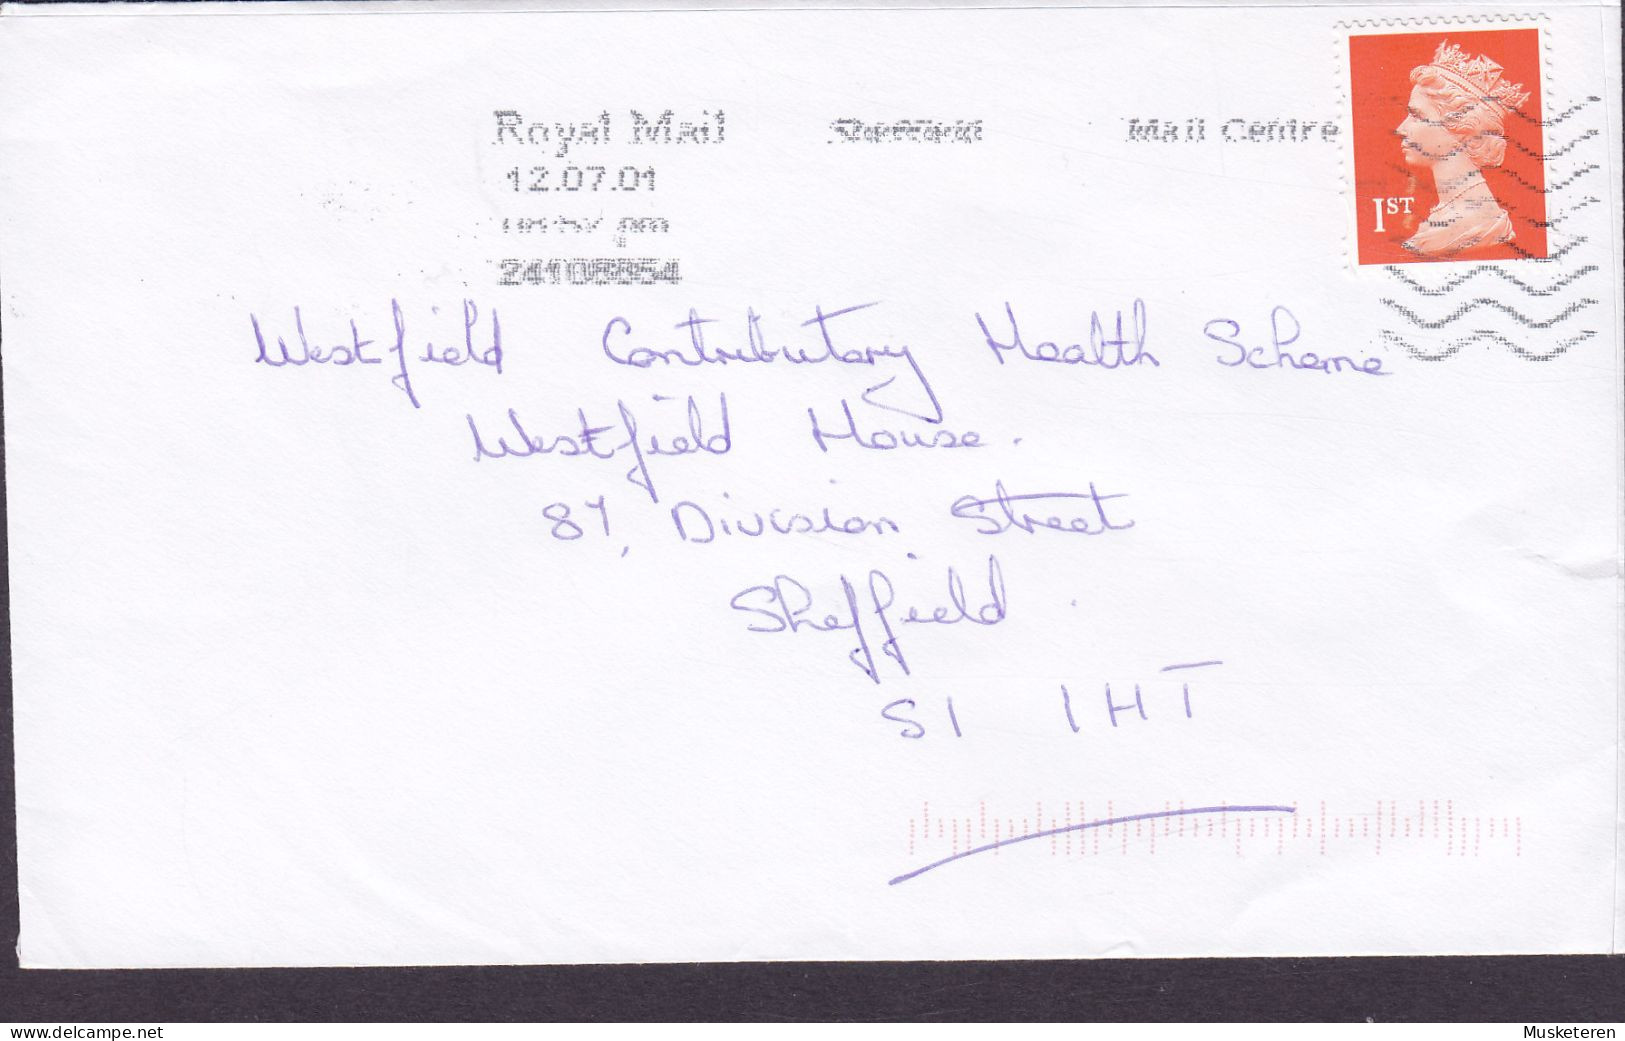 Royal Mail Sheffield Mail Centre
12.07.01
pm
24108254
1ST
Westfield Contributary Health Scheme
Westfield House.
87, Division Street
Sheffield
S1 1HT
www.delcampe.net
Musketeren